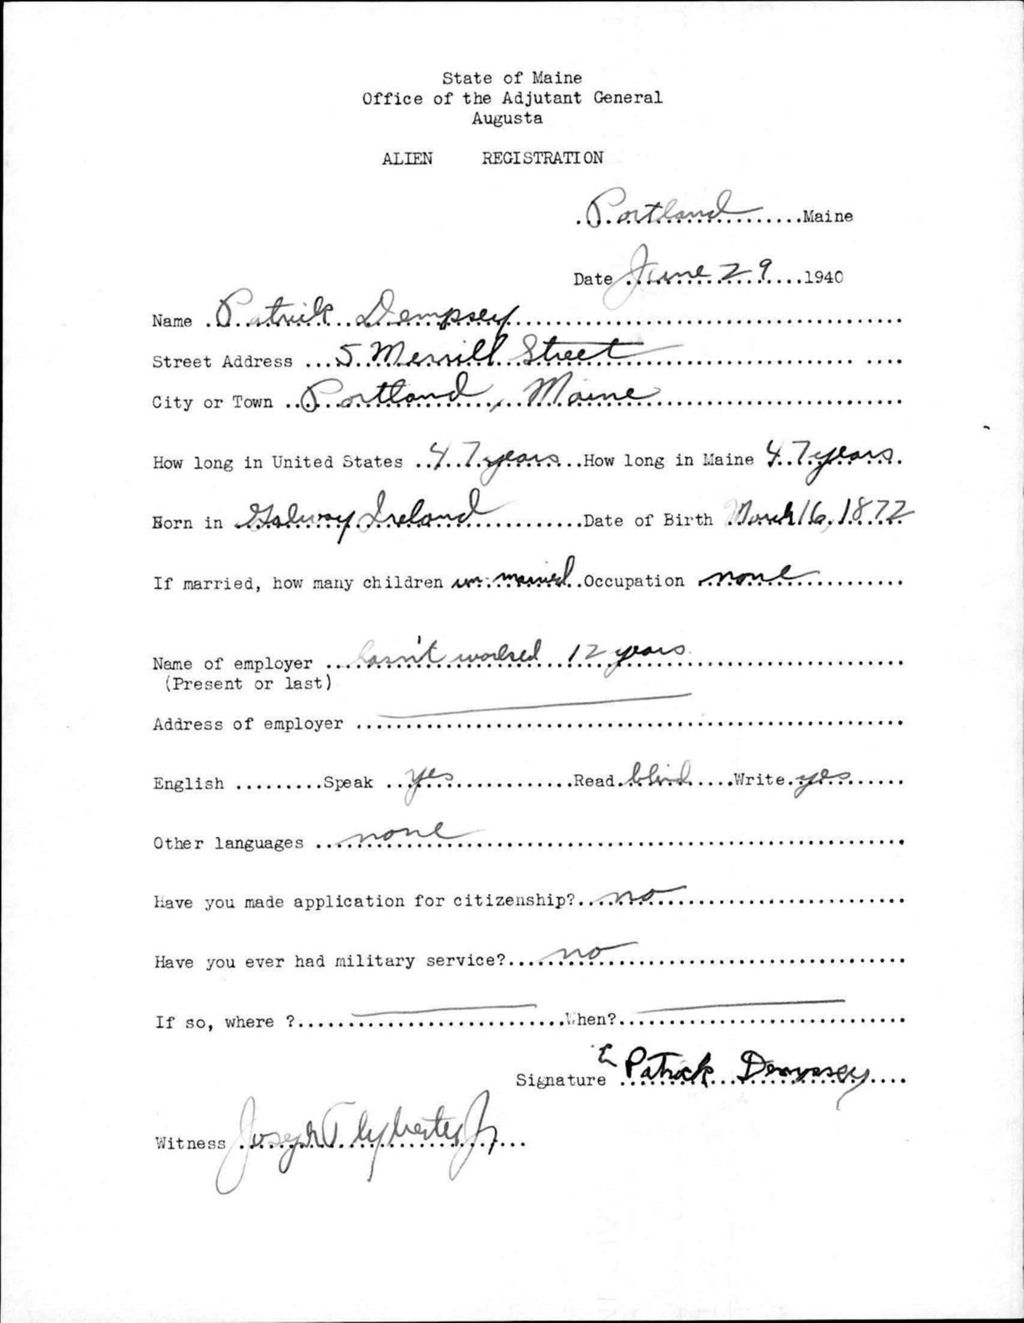 State of Maine
Office of the Adjutant General
Augusta
ALIEN REGISTRATION
Portland Maine
Date June 29 1940
Name Patrick Dempsey
Street Address 5 Merrill Street
City or Town Portland, Maine
How long in United States 47 years How long in Maine 47 years
Born in Galway Ireland Date of Birth March 16, 1872
If married, how many children un married Occupation none
Name of employer hasn't worked 12 years
(Present or last)
Address of employer
English Speak yes Read blind Write yes
Other languages none
Have you made application for citizenship? no
Have you ever had military service? no
If so, where ? When?
Signature Patrick Dempsey
Witness Joseph T Jr